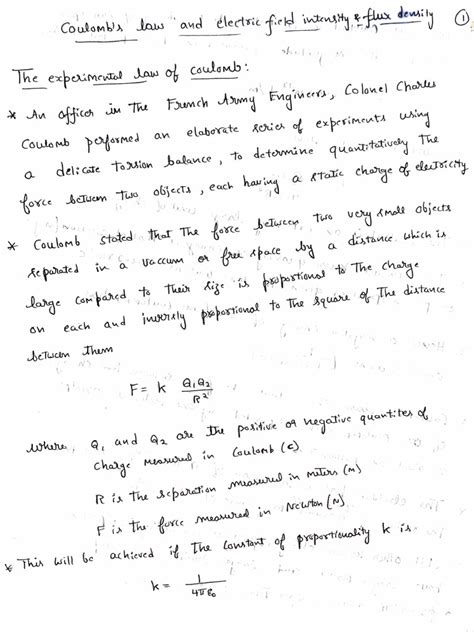 Coulomb's law and electric field intensity & flux density ①
The experimental law of coulomb:
* An officer in The French Army Engineers, Colonel Charles
Coulomb performed an elaborate series of experiments using
a delicate torsion balance, to determine quantitatively The
force between two objects, each having a static charge of electricity
* Coulomb stated that The force between two very small objects
separated in a vaccum or free space by a distance which is
large compared to their size is proportional to The charge
on each and inversly proportional to the square of The distance
between them
F = k Q₁Q₂ / R²
where, Q₁ and Q₂ are the positive or negative quantites of
charge measured in Coulomb (C)
R is the separation measured in meters (M)
F is the force measured in Newton (N)
* This will be achieved if The constant of proportionality k is
k = 1 / 4πε₀